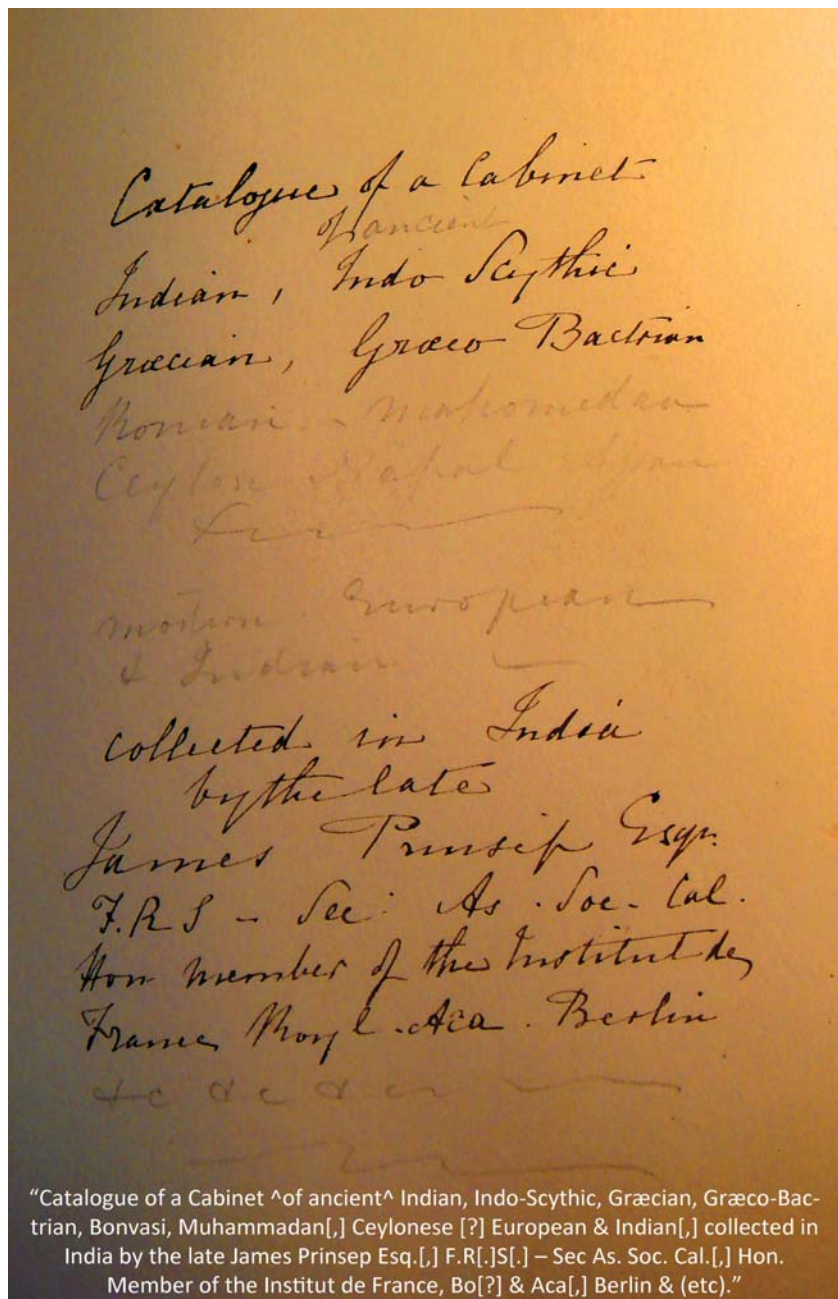 Catalogue of a Cabinet
of ancient
Indian, Indo Scythic
Græcian, Græco Bactrian
Roman - Mahomedan
Ceylon Napal
modern European
& Indian
collected in India
by the late
James Prinsep Esqr.
F.R S - Sec: As. Soc. Cal.
Hon member of the Institut de
France Royl. Aca. Berlin
&c &c &c
“Catalogue of a Cabinet ^of ancient^ Indian, Indo-Scythic, Græcian, Græco-Bac-
trian, Bonvasi, Muhammadan[,] Ceylonese [?] European & Indian[,] collected in
India by the late James Prinsep Esq.[,] F.R[.]S[.] – Sec As. Soc. Cal.[,] Hon.
Member of the Institut de France, Bo[?] & Aca[,] Berlin & (etc).”